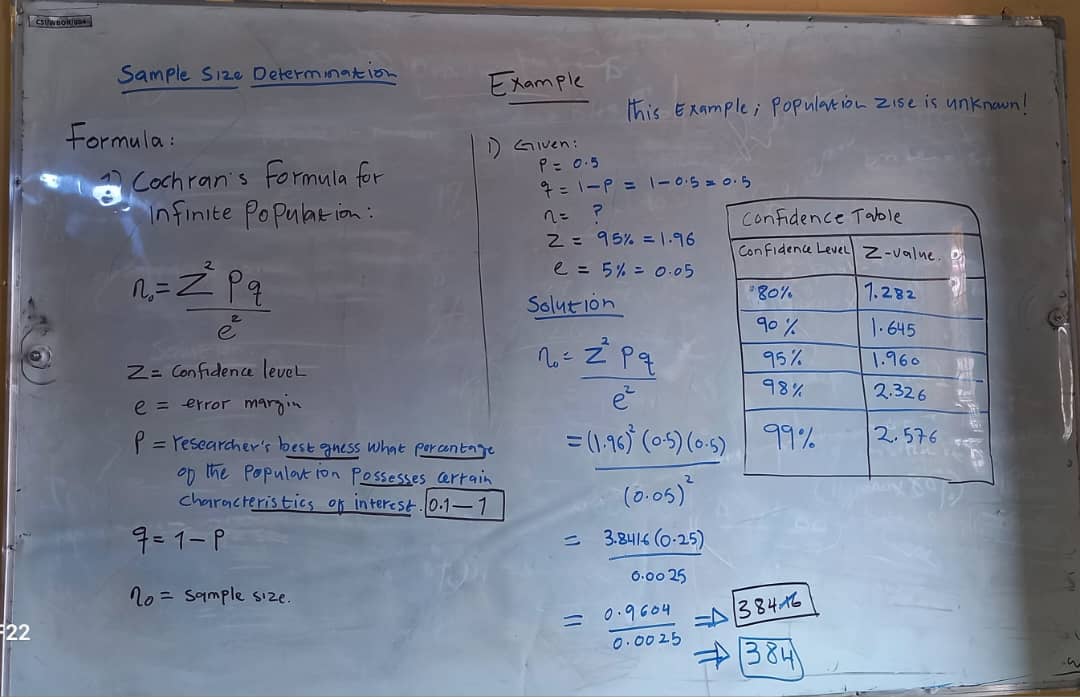 Sample Size Determination
Formula:
1) Cochran's Formula for
Infinite Population:
n₀ = Z² pq
e²
Z = Confidence level
e = error margin
P = researcher's best guess what percentage
of the population possesses certain
characteristics of interest. 0.1—1
q = 1 - P
n₀ = sample size.
Example
This Example; Population zise is unknown!
1) Given:
P = 0.5
q = 1-P = 1-0.5 = 0.5
n = ?
Z = 95% = 1.96
e = 5% = 0.05
Solution
n₀ = Z² pq
e²
= (1.96)² (0.5) (0.5)
(0.05)²
= 3.8416 (0.25)
0.0025
= 0.9604 ⇒ 384.16
0.0025
⇒ 384
Confidence Table
Confidence Level Z-value.
80% 1.282
90% 1.645
95% 1.960
98% 2.326
99% 2.576
22